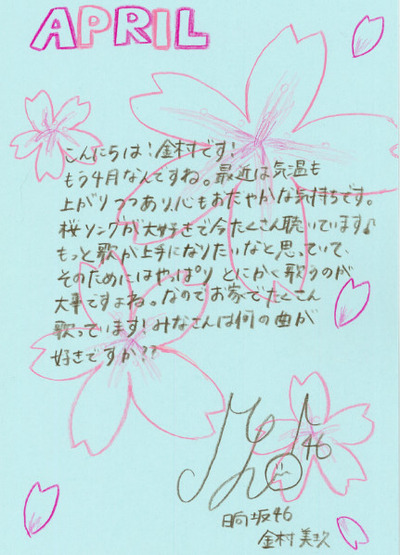 APRIL
こんにちは！金村です！
もう4月なんですね。最近は気温も
上がりつつあり、心もおだやかな気持ちです。
桜ソングが大好きで今たくさん聴いています♪
もっと歌が上手になりたいなと思っていて、
そのためにはやっぱりとにかく歌うのが
大事ですよね。なのでお家でたくさん
歌っています！みなさんは何の曲が
好きですか??
46
日向坂46
金村美玖